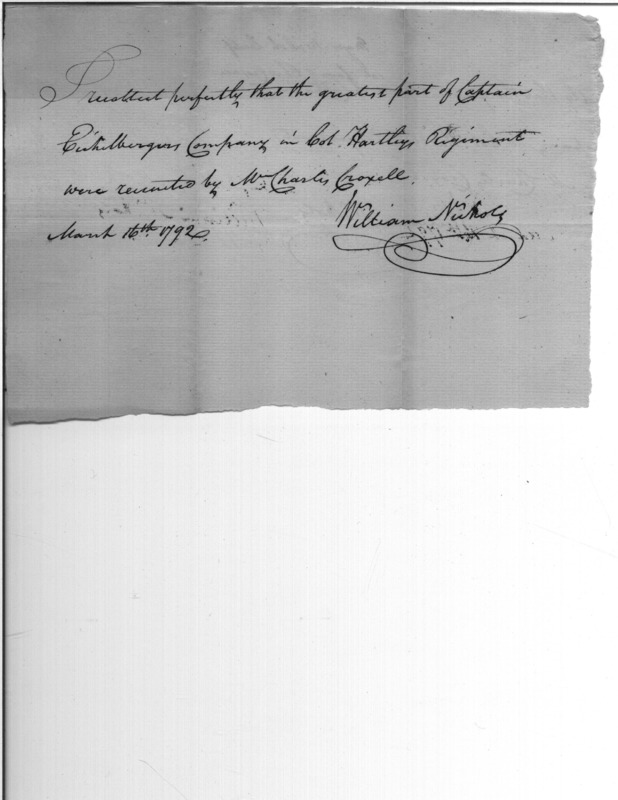 I recollect perfectly that the greatest part of Captain
Eichelbergers Company in Col. Hartleys Regiment
were recruited by Mr Charles Croxell.
William Nichols
March 16th 1792.